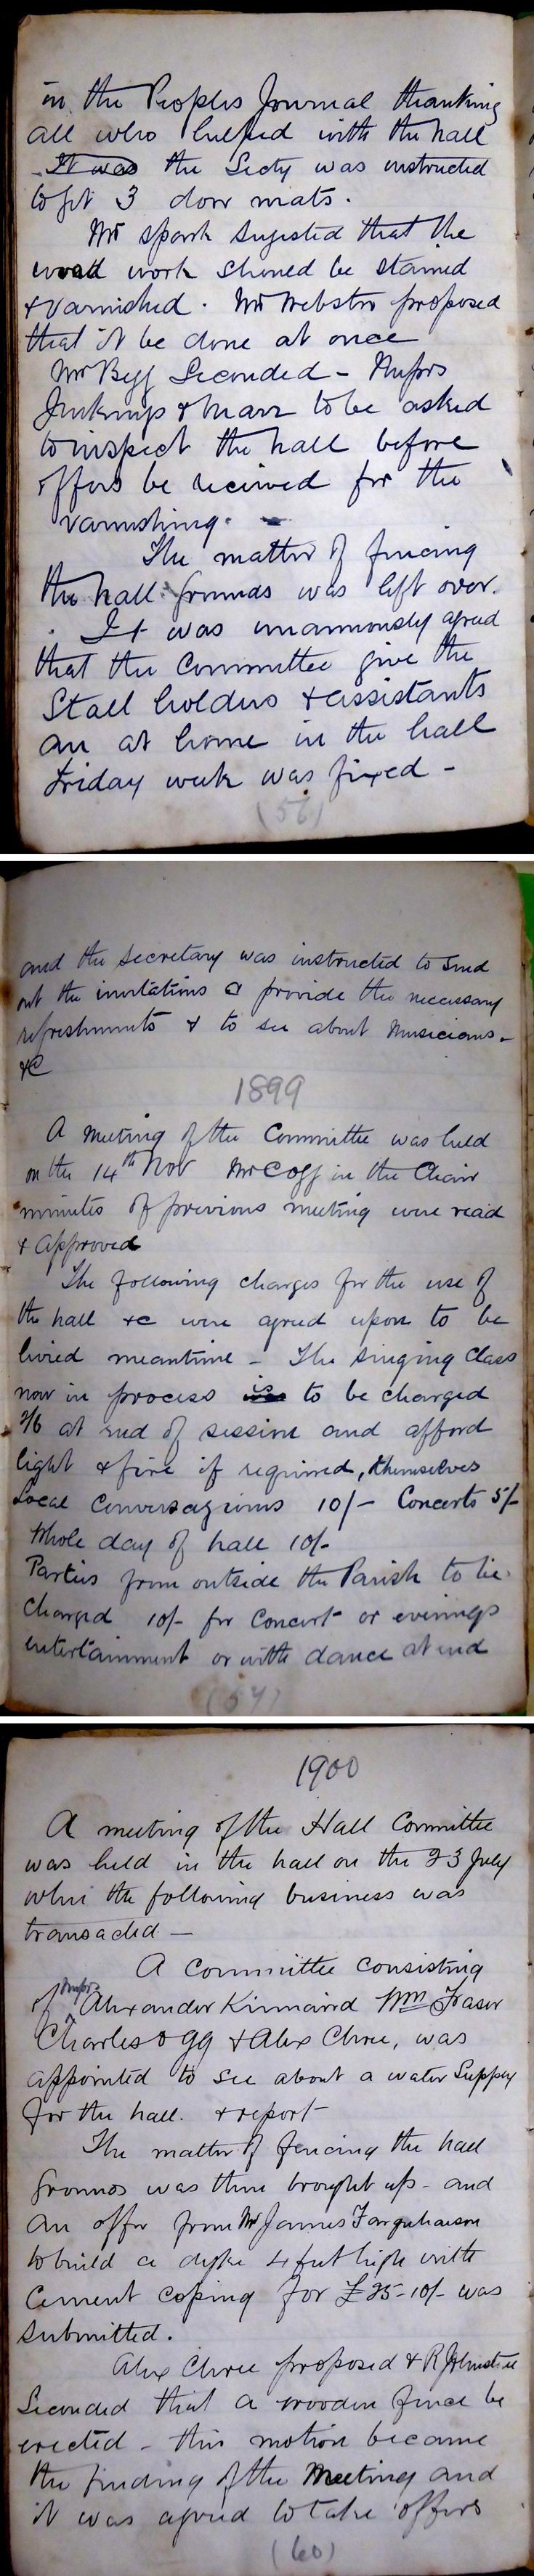 in the Peoples Journal thanking
all who helped with the hall
It was the Secty was instructed
to get 3 door mats.
Mr Spark Sugested that the
wood work should be stained
& varnished. Mr Webster proposed
that it be done at once
Mr Begg Seconded - Messrs
Jenkins & Marr to be asked
to inspect the hall before
offers be received for the
varnishing.
The matter of fencing
the hall grounds was left over.
It was unanimously agreed
that the Committee give the
Stall holders & assistants
an at home in the hall
Friday week was fixed -
(56)
and the Secretary was instructed to Send
out the invitations & provide the necessary
refreshments & to see about Musicians -
&c
1899
A Meeting of the Committee was held
on the 14th Nov Mr Cogg in the Chair
minutes of previous meeting were read
& Approved
The following charges for the use of
the hall &c were agreed upon to be
livied meantime - The Singing Class
now in process is to be charged
2/6 at end of session and afford
light & fire if required, themselves
Local Conversaziones 10/- Concerts 5/-
Whole day of hall 10/-
Parties from outside the Parish to be
Charged 10/- for Concert or evenings
entertainment or with dance at end
(57)
1900
A meeting of the Hall Committee
was held in the hall on the 23 July
when the following business was
transacted -
A Committee consisting
of Messrs Alexander Kinnaird Wm Fraser
Charles Ogg & Alex Chree, was
appointed to see about a water Supply
for the hall. & report
The matter of fencing the hall
Grounds was then brought up - and
an offer from Mr James Farquharson
to build a dyke 4 feet high with
Cement coping for £25-10/- was
Submitted.
Alex Chree proposed & R Johnstone
Seconded that a wooden fence be
erected - this motion became
the finding of the Meeting and
it was agreed to take offers
(60)